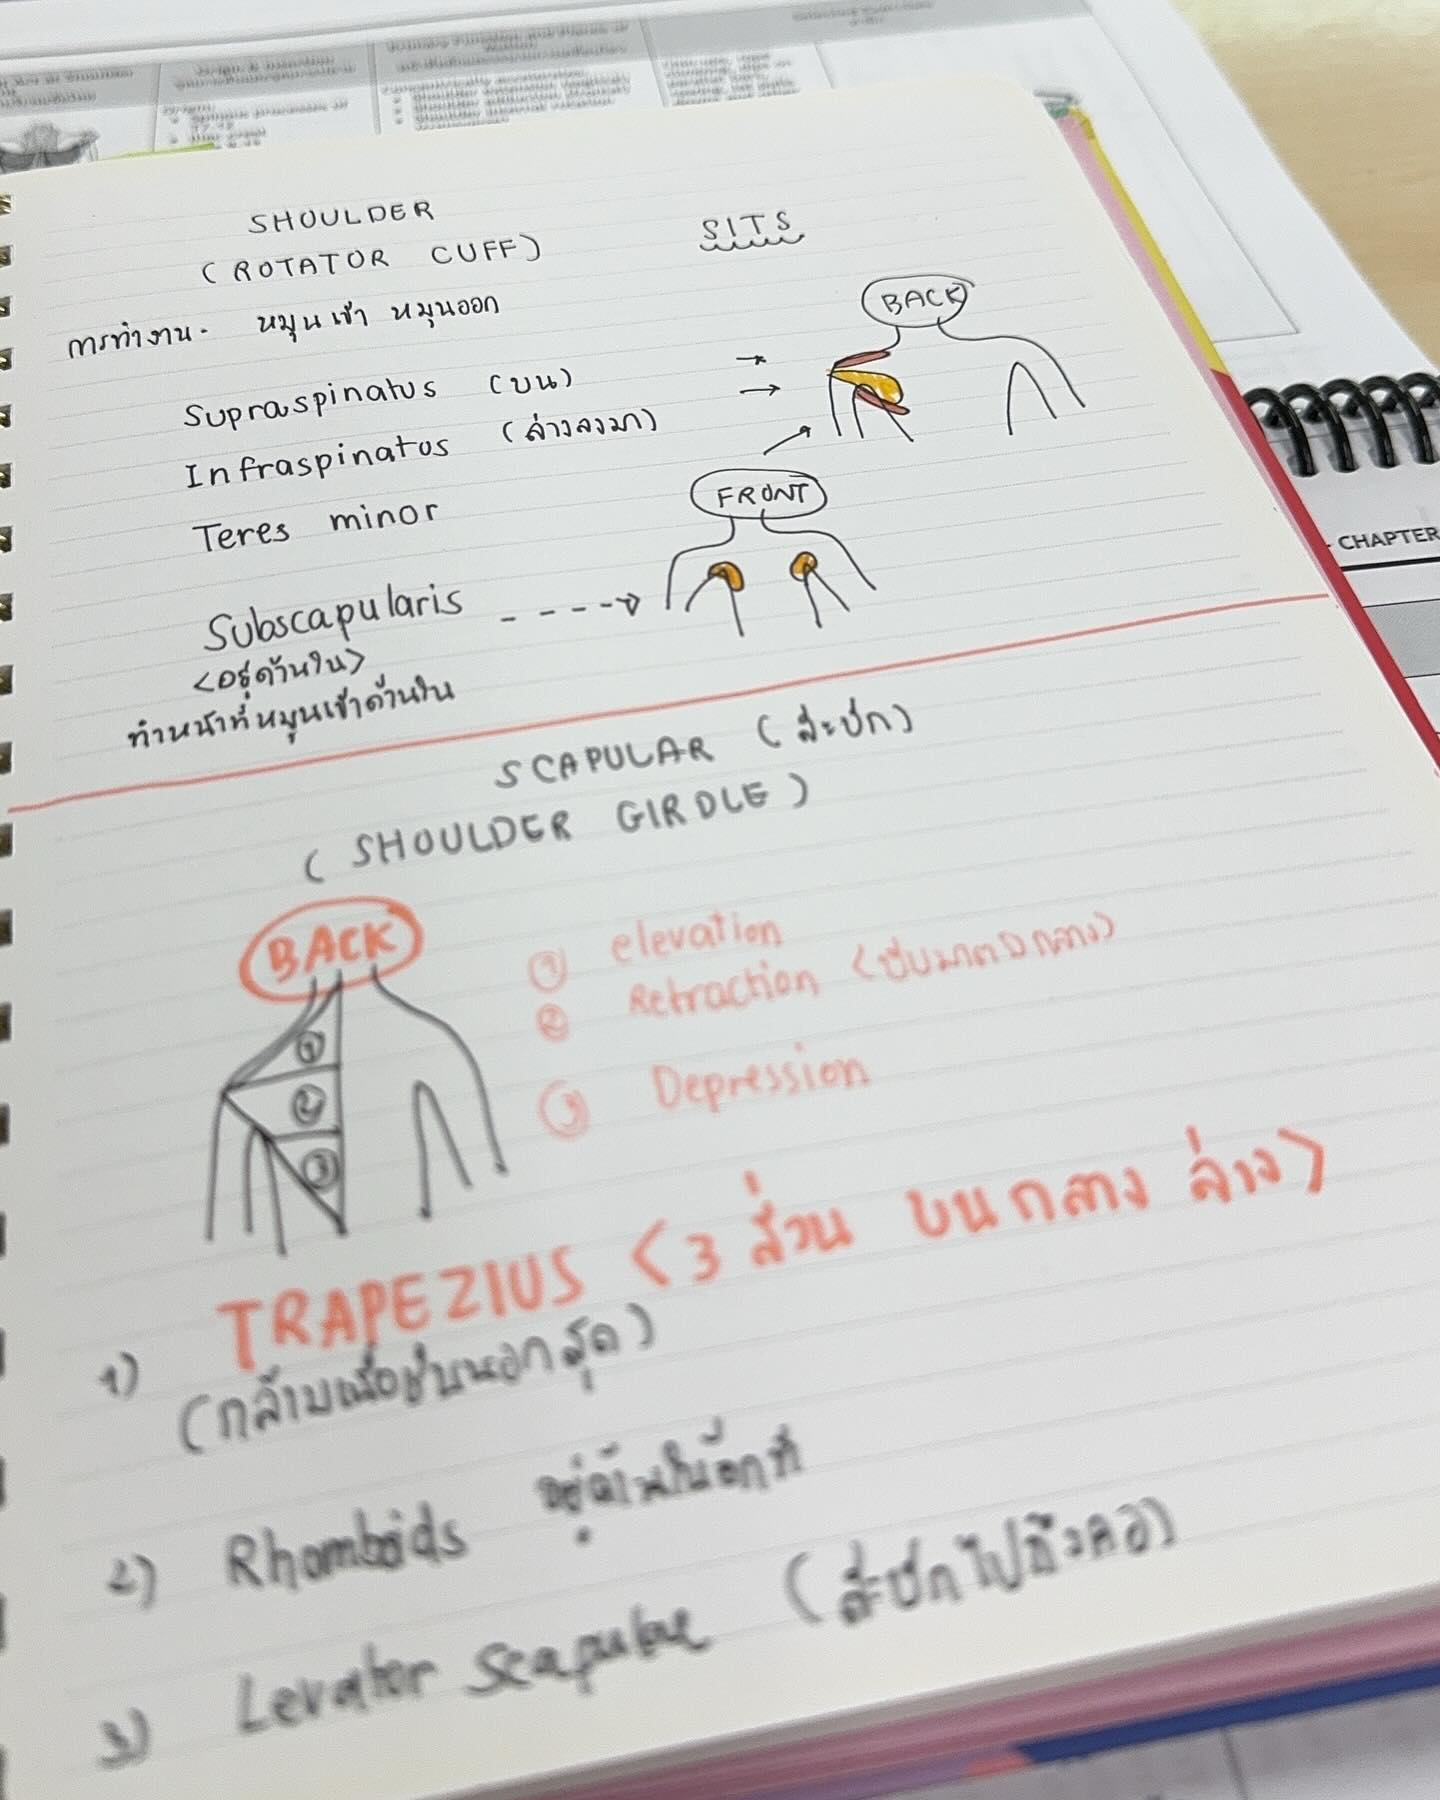 SHOULDER
(ROTATOR CUFF)
SITS
การทำงาน - หมุนเข้า หมุนออก
BACK
Supraspinatus (บน)
Infraspinatus (ล่างลงมา)
Teres minor
FRONT
Subscapularis
<อยู่ด้านใน>
ทำหน้าที่หมุนเข้าด้านใน
CHAPTER
SCAPULAR (สะบัก)
(SHOULDER GIRDLE)
BACK
① elevation
② Retraction <บีบมาตรงกลาง>
③ Depression
①
②
③
1) TRAPEZIUS <3 ส่วน บน กลาง ล่าง>
(กล้ามเนื้อชั้นนอกสุด)
2) Rhomboids อยู่ด้านในอีกที
3) Levator scapulae (สะบักไปถึงคอ)